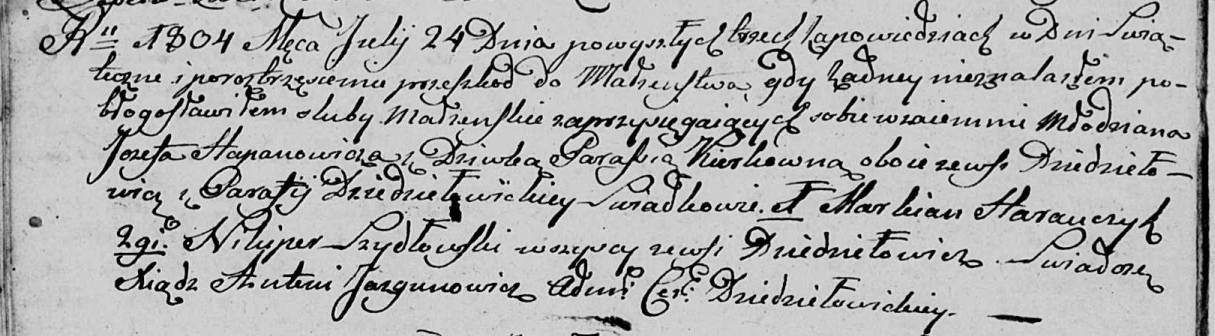 Rᵘ 1804 Męca July 24 Dnia powyszłych trzech zapowiedziach w Dni Świą-
teczne i porozbrzęsieniu przeszkod do Małżeństwa gdy żadney nieznalazłem po-
błogosławiłem sluby Małżenskie zaprzysięgaiących sobie wzaiemnie Młodziana
Jozefa Stapanowicza z Dziwką Parasią Kierkowną oboie zewsi Dziedziło-
wicz z Parafij Dziedziełowickiey Swiadkowie. 1 Markian Haranczyk
2gi. Nikiper Szydłowski wszyscy zewsi Dziedziełowicz. Swiadczę
Xiądz Antoni Jazgunowicz Admi: Cer: Dziedziełowickiey. —